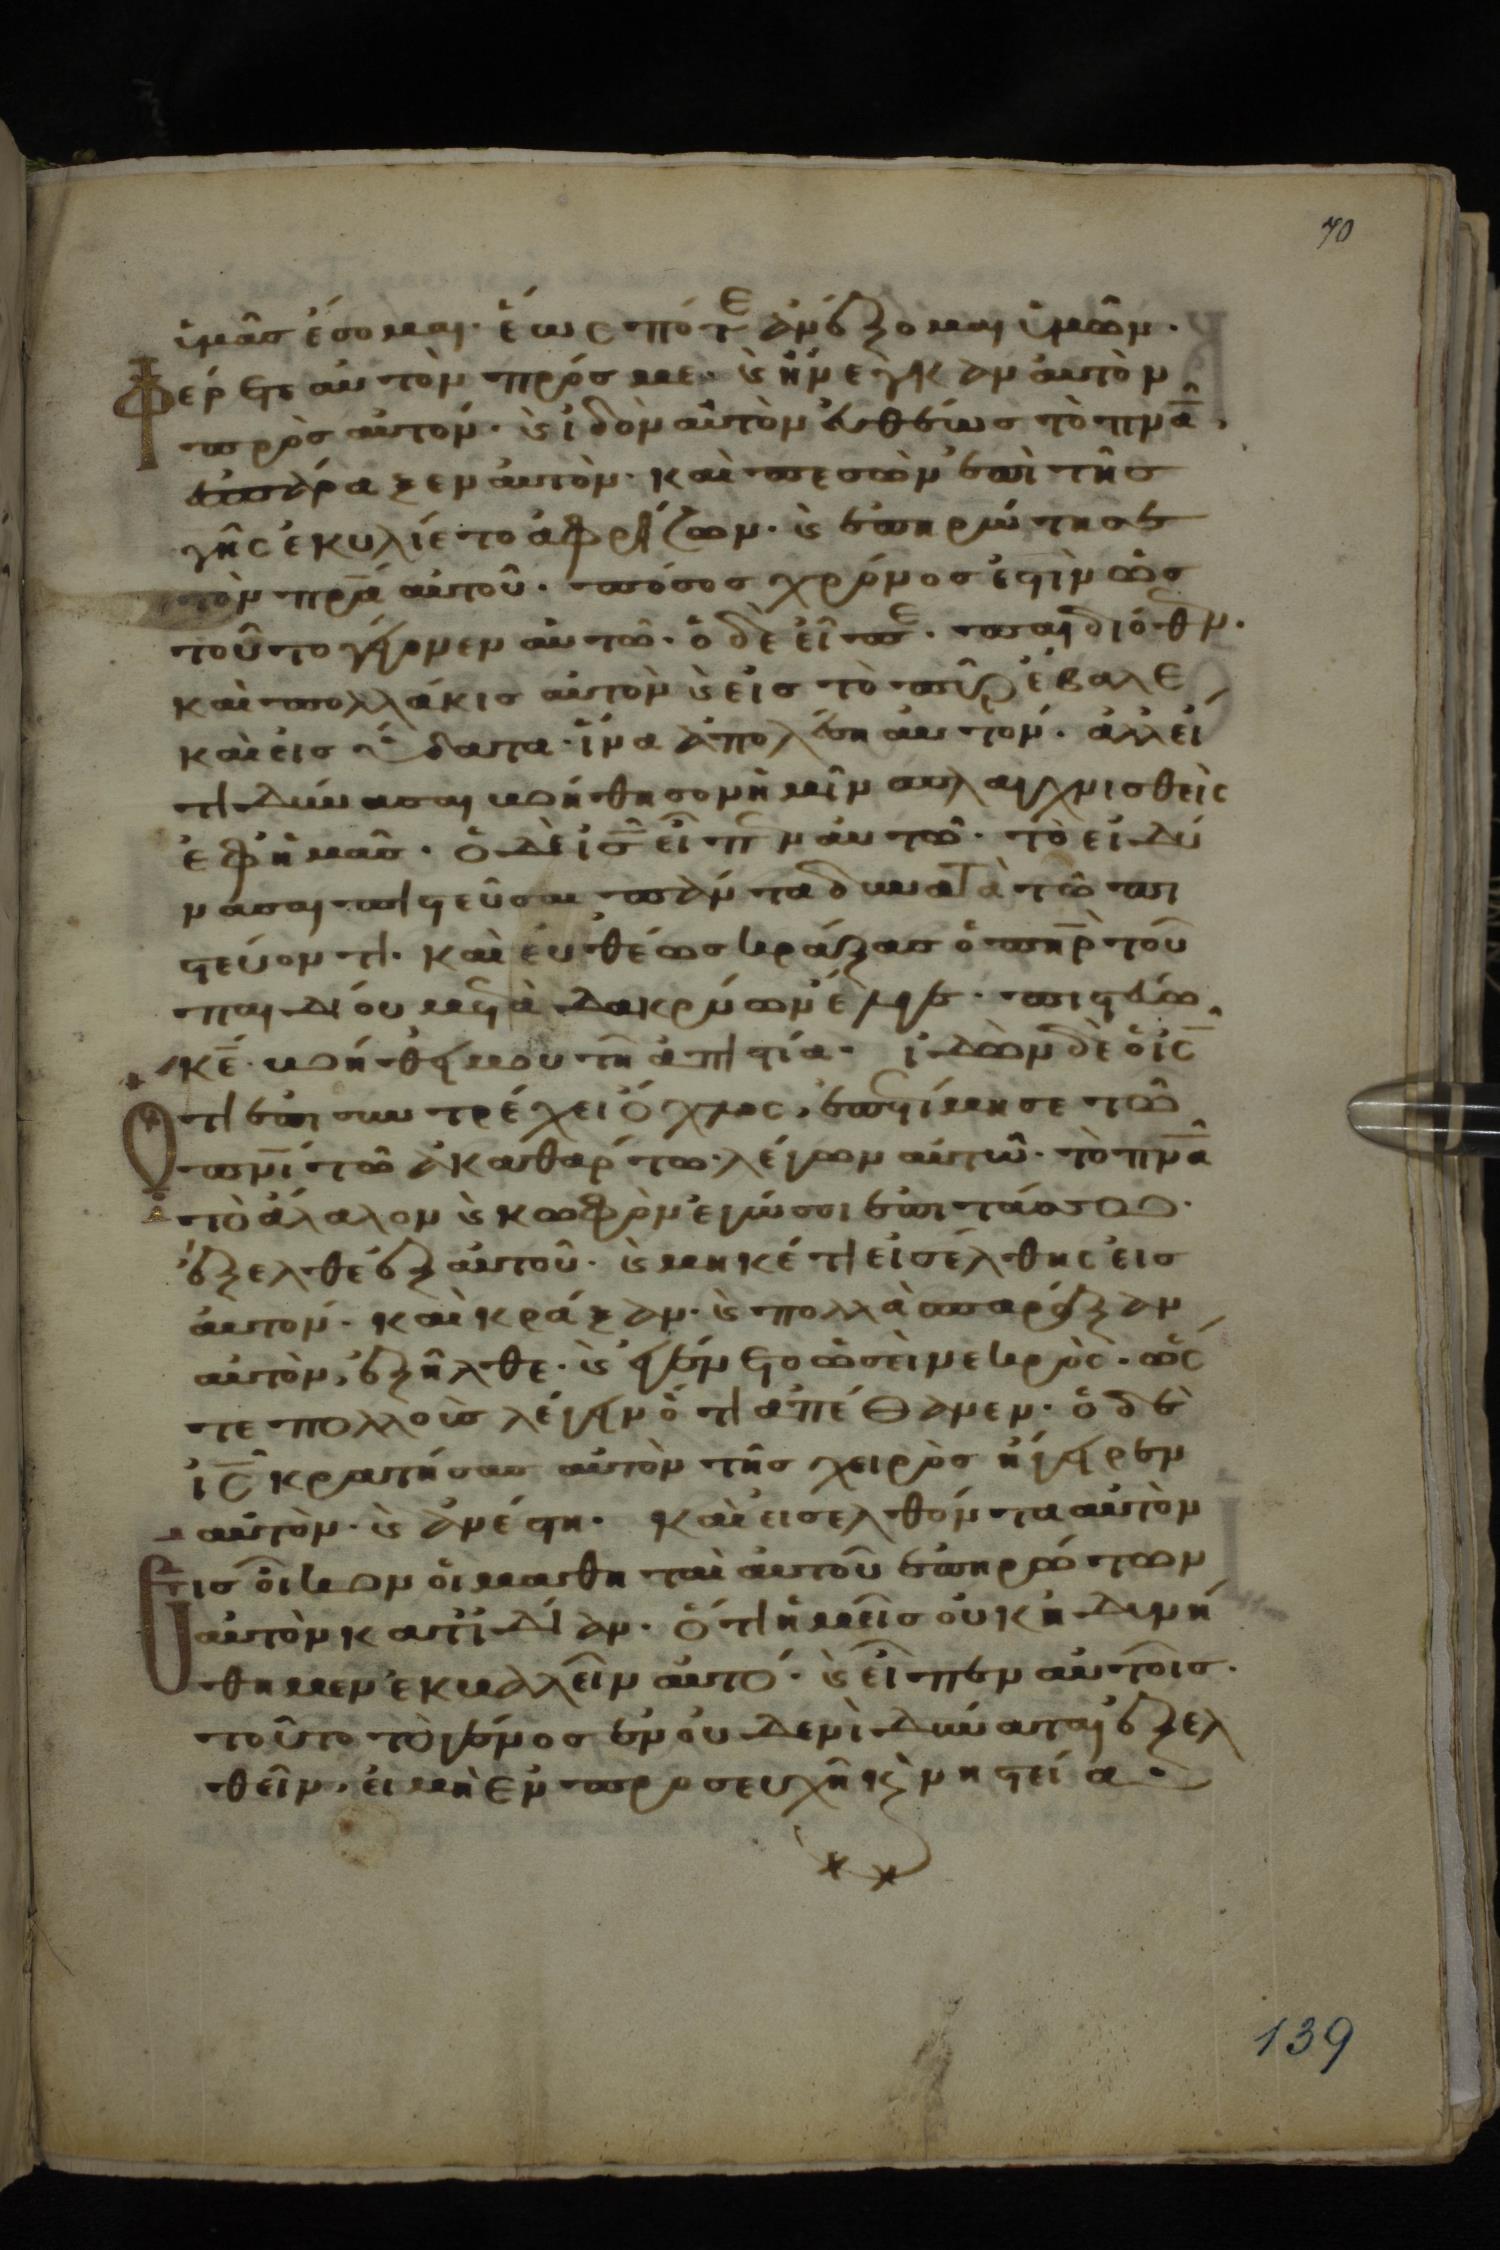 70
ὑμᾶς ἔσομαι· ἕως πότε ἀνέξομαι ὑμῶν·
Φέρετε αυτὸν πρός με· κ ἤνεγκαν αὐτὸν
πρὸς αὐτόν· κ ἰδὸν αὐτὸν εὐθέως τὸ πνᾶ,
ἐσπάραξεν αὐτὸν· καὶ πεσὼν ἐπὶ τῆς
γῆς ἐκυλίετο ἀφρίζων· κ ἐπηρώτησε
τὸν πρᾶ αὐτοῦ· πόσος χρόνος ἐστὶν ὡς
τοῦτο γέγονεν αὐτῶ· ὁ δὲ εἶπε· παιδιόθεν·
καὶ πολλάκις αὐτὸν κ εἰς τὸ πῦρ ἔβαλε,
καὶ εἰς ὕδατα· ἵνα ἀπολέση αὐτόν· ἀλλ εἴ
τι δύνασαι βοήθησον ἡμῖν σπλαγχνισθεὶς
ἐφ ἡμᾶς· ὁ δὲ ις εἶπεν αὐτῶ· τὸ εἰ δύ
νασαι πιστεῦσαι πάντα δυνατὰ τῶ πι
στεύοντι· καὶ εὐθέως κράξας ὁ πηρ τοῦ
παιδίου μετὰ δακρύων ἔλεγε· πιστεύω
κε· βοήθει μου τῆ ἀπιστία· ἰδὼν δὲ ὁ ις
ὅτι ἐπισυντρέχει ὄχλος, ἐπετίμησε τῶ
πνι τῶ ἀκαθάρτω· λέγων αὐτῶ· τὸ πνᾶ
τὸ ἄλαλον κ κωφὸν ἐγώ σοι ἐπιτάσσω·
ἔξελθε ἐξ αὐτοῦ· κ μηκέτι εἰσέλθης εἰς
αὐτόν· καὶ κράξαν· κ πολλὰ σπαράξαν
αὐτὸν, ἐξῆλθε· κ ἐγένετο ὡσεὶ νεκρὸς· ὥς
τε πολλοὺς λέγειν ὅτι ἀπέθανεν· ὁ δὲ
ις κρατήσας αὐτὸν τῆς χειρὸς ἤγειρεν
αὐτὸν· κ ἀνέστη· Καὶ εἰσελθόντα αὐτὸν
εἰς οἶκον οἱ μαθηταὶ αὐτοῦ ἐπηρώτων
αὐτὸν κατ ἰδίαν· ὅτι ἡμεῖς οὐκ ἠδυνή
θημεν ἐκβαλεῖν αὐτό· κ εἶπεν αὐτοῖς·
τοῦτο τὸ γένος ἐν οὐδενὶ δύναται ἐξελ
θεῖν, εἰ μὴ ἐν προσευχῆ κ νηστεία·
139